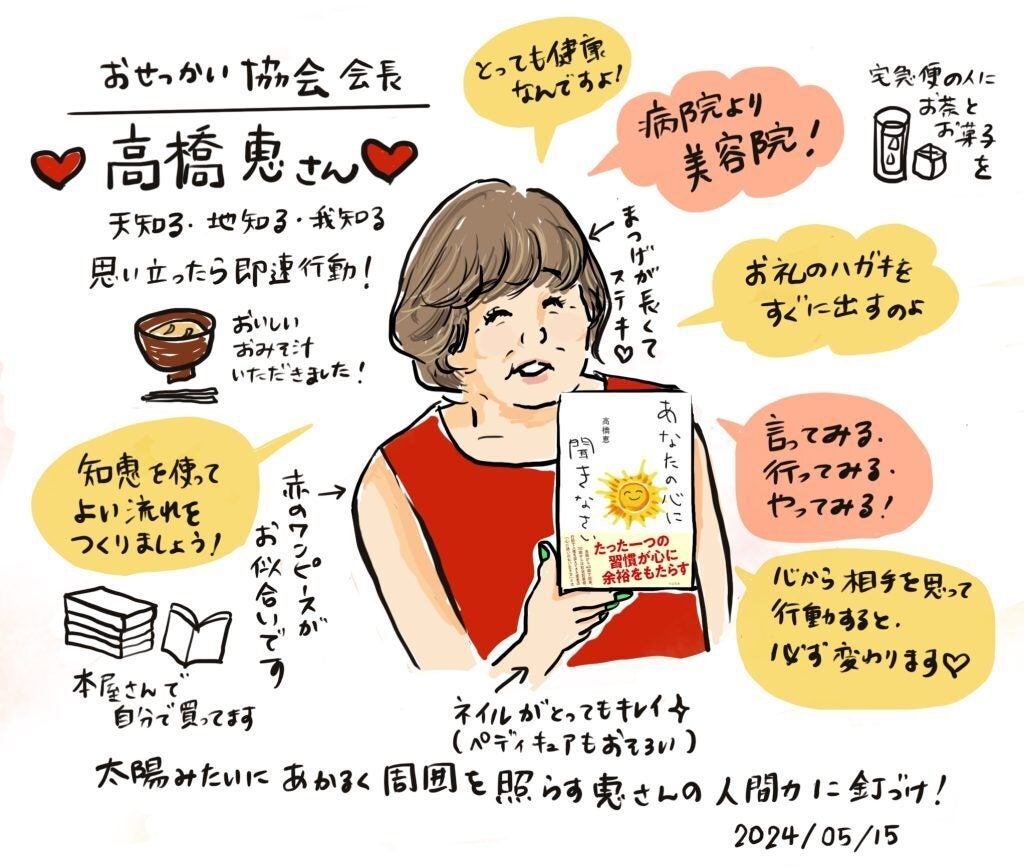 おせっかい協会 会長
高橋恵さん
天知る・地知る・我知る
思い立ったら即連行動!
おいしい
おみそ汁
いただきました!
とっても健康
なんですよ!
病院より
美容院!
宅急便の人に
お茶と
お菓子
を
まつげが長くて
ステキ♡
お礼のハガキを
すぐに出すのよ
言ってみる.
行ってみる.
やってみる!
心から相手を思って
行動すると、
必ず変わります♡
知恵を使って
よい流れを
つくりましょう!
赤のワンピースが
お似合いです
本屋さんで
自分で買ってます
あなたの心に
聞きなさい
高橋恵
たった一つの
習慣が心に
余裕をもたらす
ネイルがとってもキレイ✧
(ペディキュアもおそろい)
太陽みたいにあかるく周囲を照らす恵さんの人間力に釘づけ!
2024/05/15